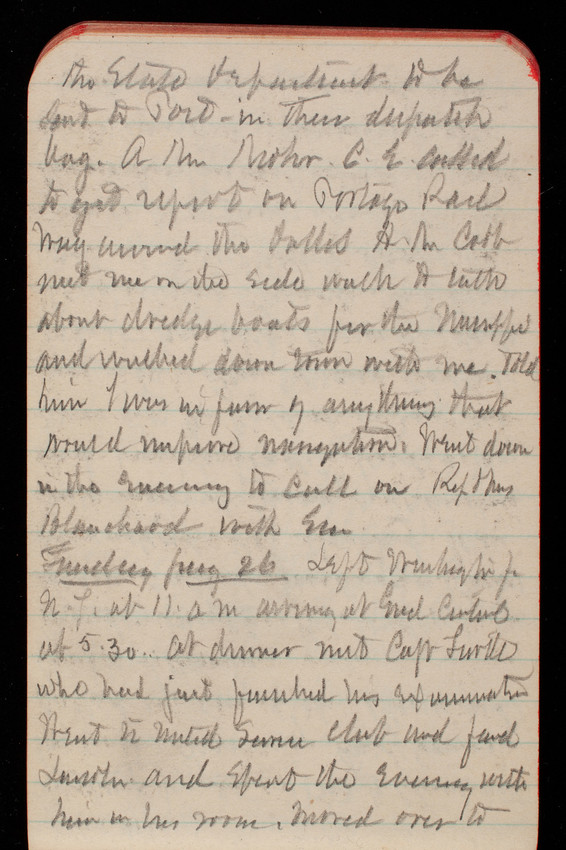 the State Department to be
sent to Port - in their dispatch
bag. A Mr Mohr. C. E. called
to get report on Portage Rail
Way around the Dalles A Mr Cobb
met me on the side walk to talk
about dredge boats for the
and walked down town with me. Told
him I was in favor of anything that
would improve navigation. Went down
in the evening to call on Rep & Mrs
Blanchard with Em
Tuesday 26 Left Washington for
N.Y. at 11. a m arriving at Grd Central
at 5.30.. at dinner met Capt Turtle
who had just finished his examination
Went to United Service Club and found
Lincoln and spent the evening with
him in his room. Moved over to